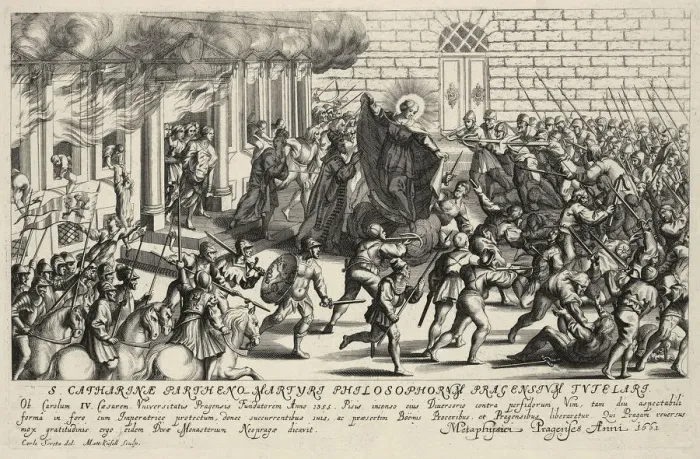 S. CATHARINÆ PARTHENO-MARTYRI PHILOSOPHORVM PRAGENSIVM TVTELARI.
Ob Carolum IV. Cæsarem Universitatis Pragensis Fundatorem Anno 1355. Pisis incenso eius Diversorio contra perfidorum Vim, tam diu aspectabili
forma in fere cum Imperatrice protectum, donec succurrentibus suis, ac præsertim Boëmis Proceribus, et Pragensibus liberaretur. Qui Pragam reversus
mox gratitudinis ergo eidem Divæ Monasterium Neopragæ dicavit. Metaphysici Pragenses Anni 1661
Carlo Screta del. Mat: Küsell Sculp.